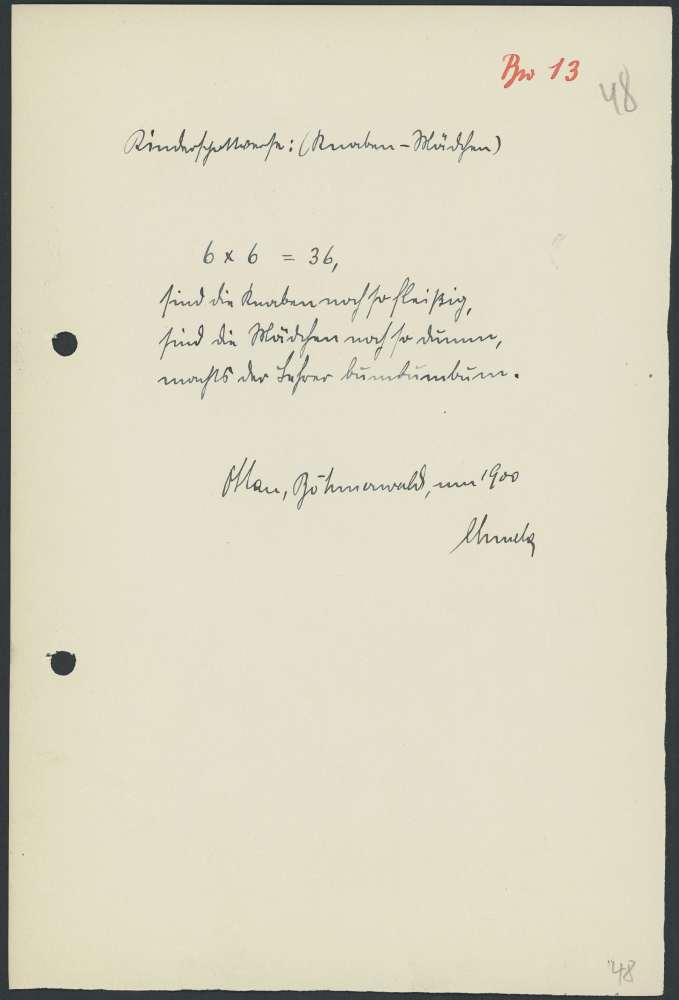 Bw 13
48
Kinderspottverse: (Knaben - Mädchen)
6 x 6 = 36,
sind die Knaben noch so fleißig,
sind die Mädchen noch so dumm,
machts der Lehrer bumbumbum.
Ottau, Böhmerwald, um 1900
48